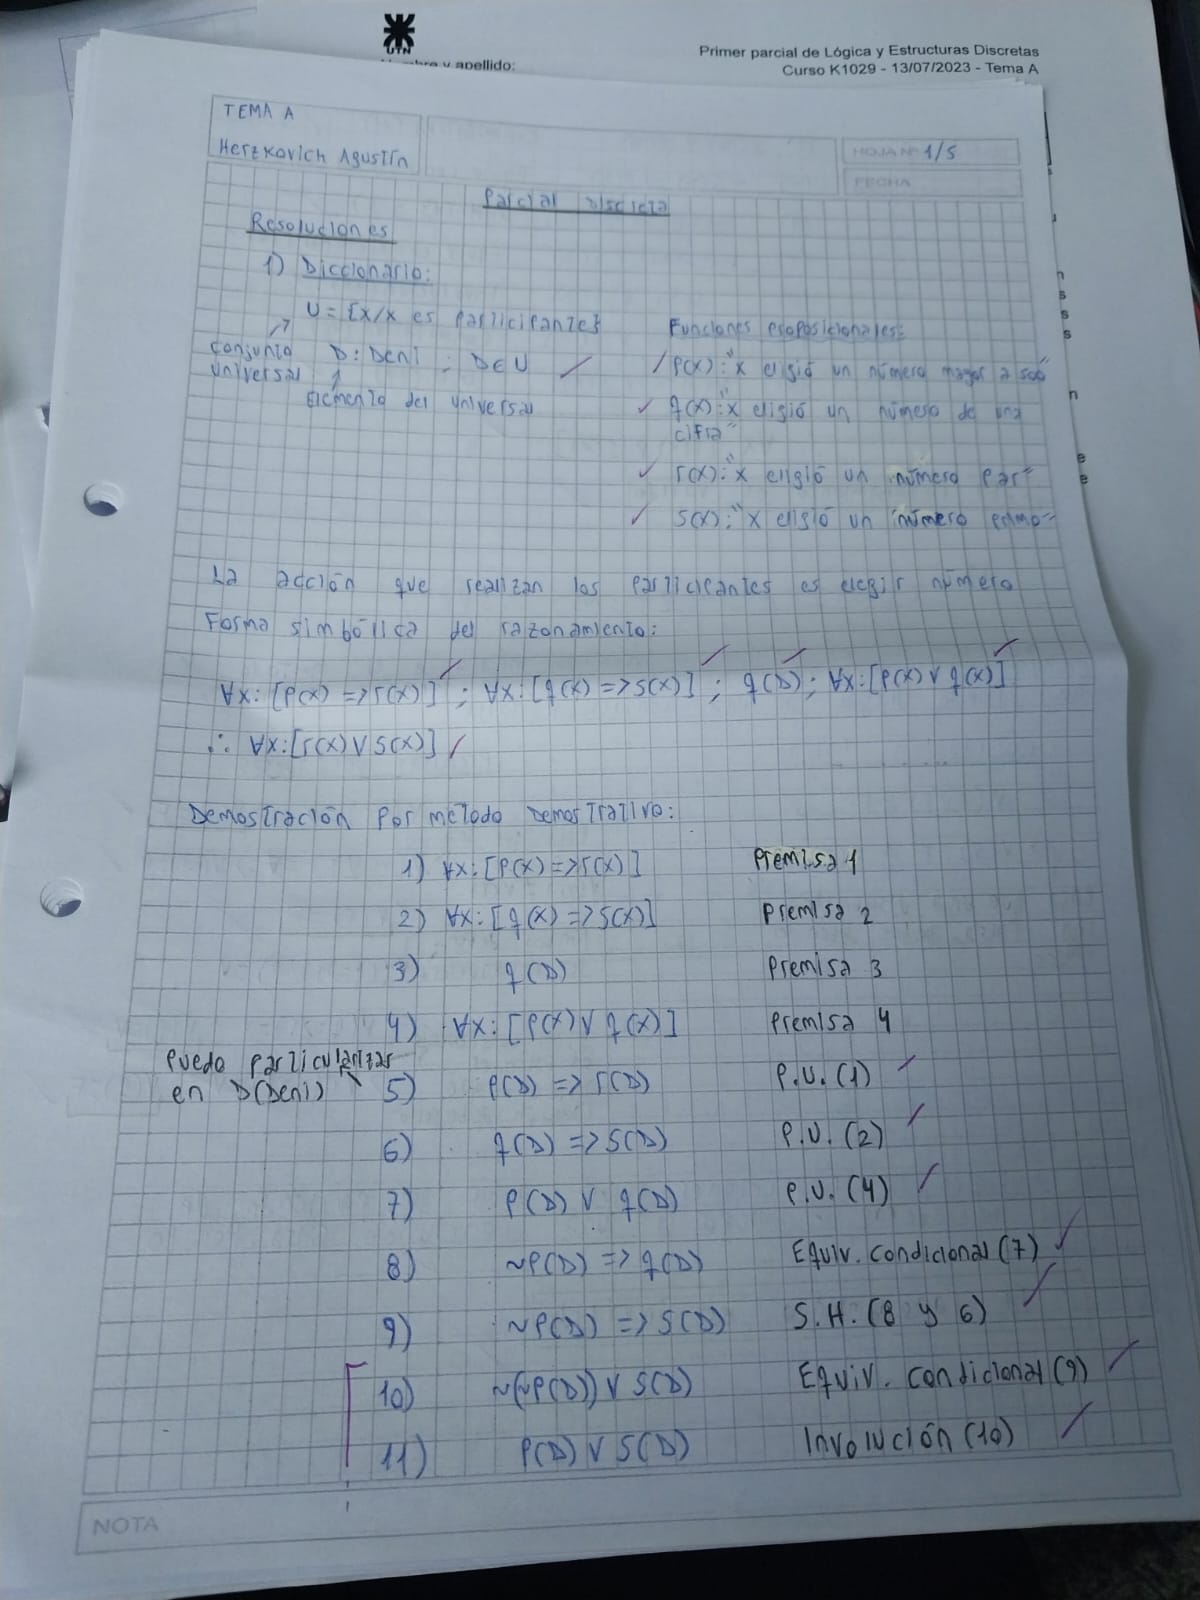 UTN
Nombre y apellido:
Primer parcial de Lógica y Estructuras Discretas
Curso K1029 - 13/07/2023 - Tema A
TEMA A
Herzkovich Agustín
HOJA Nº 1/5
FECHA
Parcial Discreta
Resoluciones
1) Diccionario:
U = {x/x es participante}
conjunto universal
D: Deni ; D∈U
Elemento del universal
Funciones proposicionales:
P(x): "x eligió un número mayor a 500"
q(x): "x eligió un número de una
cifra"
r(x): "x eligió un número par"
s(x): "x eligió un número primo"
La acción que realizan los participantes es elegir número
Forma simbólica del razonamiento:
∀x: [P(x) => r(x)] ; ∀x: [q(x) => s(x)] ; q(D) ; ∀x: [P(x) ∨ q(x)]
∴ ∀x: [r(x) ∨ s(x)]
Demostración por metodo Demostrativo:
1) ∀x: [P(x) => r(x)] Premisa 1
2) ∀x: [q(x) => s(x)] Premisa 2
3) q(D) Premisa 3
4) ∀x: [P(x) ∨ q(x)] Premisa 4
Puedo particularizar
en D(Deni)
5) P(D) => r(D) P.U. (1)
6) q(D) => s(D) P.U. (2)
7) P(D) ∨ q(D) P.U. (4)
8) ~P(D) => q(D) Equiv. condicional (7)
9) ~P(D) => s(D) S.H. (8 y 6)
10) ~(~P(D)) ∨ s(D) Equiv. condicional (9)
11) P(D) ∨ s(D) Involución (10)
NOTA